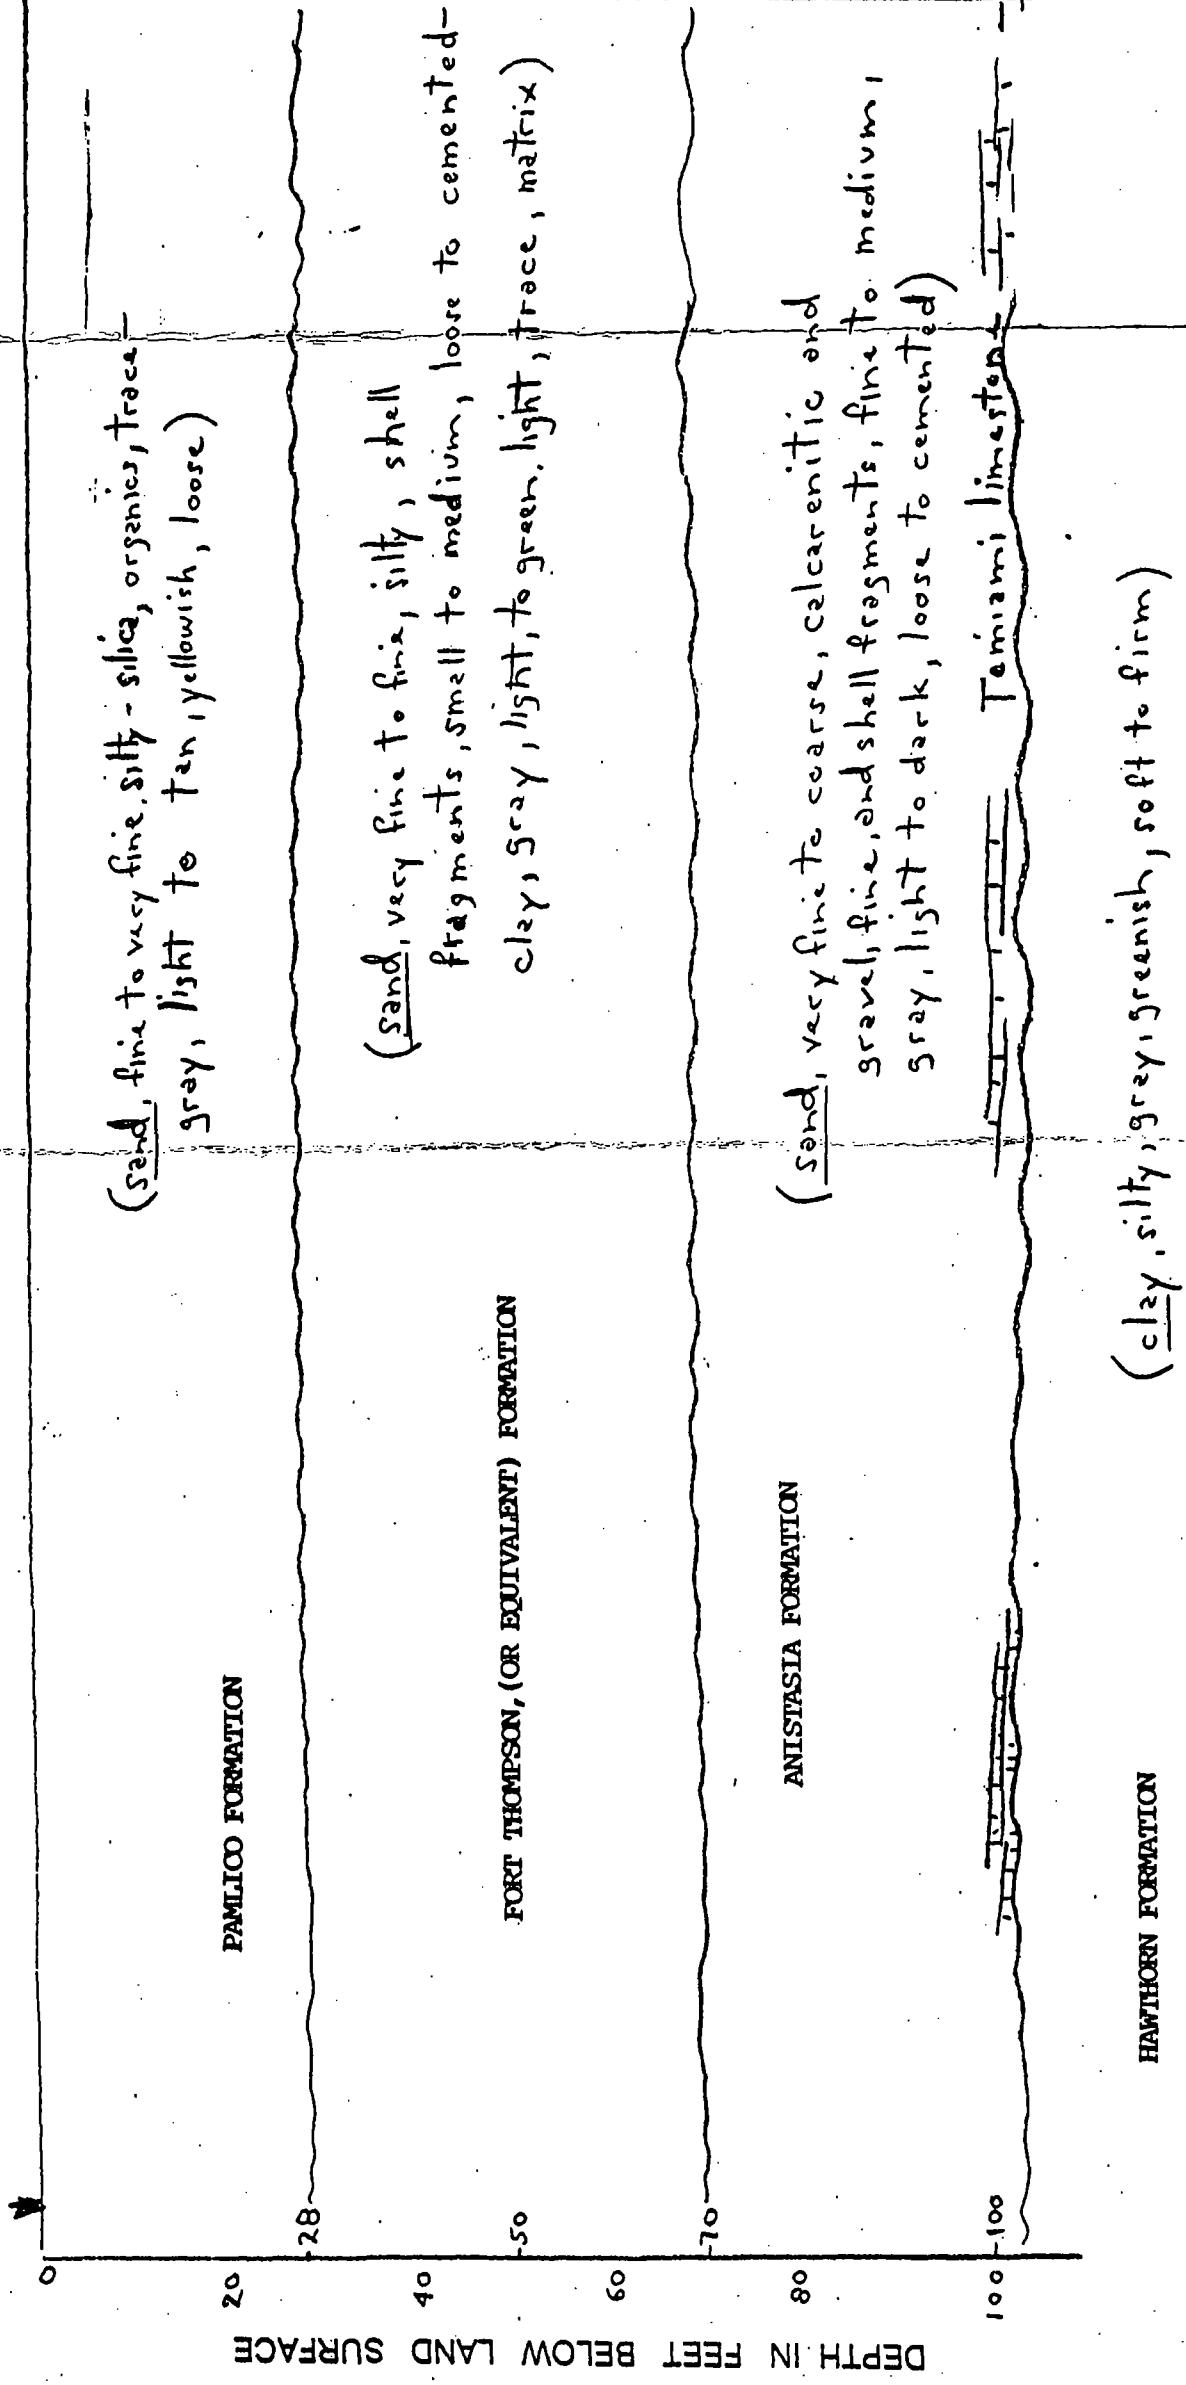 DEPTH IN FEET BELOW LAND SURFACE
0
20
28
40
50
60
70
80
100
100
PAMLICO FORMATION
(sand, fine to very fine, silty - silica, organics, trace -
gray, light to tan, yellowish, loose)
FORT THOMPSON, (OR EQUIVALENT) FORMATION
(sand, very fine to fine, silty, shell
fragments, small to medium, loose to cemented-
clay, gray, light, to green, light, trace, matrix)
ANISTASIA FORMATION
(sand, very fine to coarse, calcarenitic and
gravel, fine, and shell fragments, fine to medium,
gray, light to dark, loose to cemented)
Tamiami limestone
HAWTHORN FORMATION
(clay, silty, gray, greenish, soft to firm)